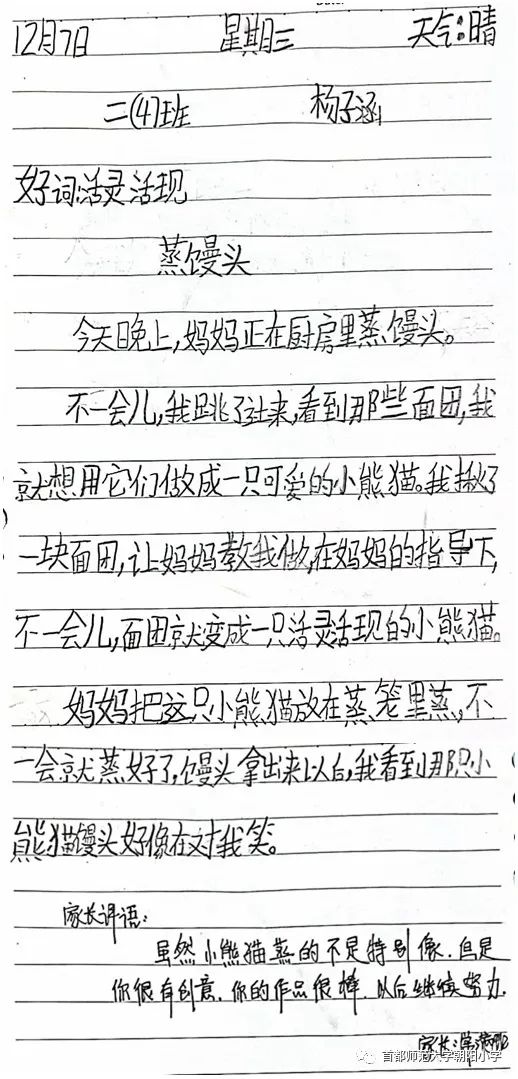 12月7日 星期三 天气:晴
二(4)班 杨子涵
好词:活灵活现
蒸馒头
今天晚上,妈妈正在厨房里蒸馒头。
不一会儿,我跳了过来,看到那些面团,我
就想用它们做成一只可爱的小熊猫。我揪了
一块面团,让妈妈教我做,在妈妈的指导下,
不一会儿,面团就变成一只活灵活现的小熊猫。
妈妈把这只小熊猫放在蒸笼里蒸,不
一会就蒸好了,馒头拿出来以后,我看到那只小
熊猫馒头好像在对我笑。
家长评语:
虽然小熊猫蒸的不是特别像,但是
你很有创意,你的作品很棒,以后继续努力.
家长:
首都师范大学朝阳小学